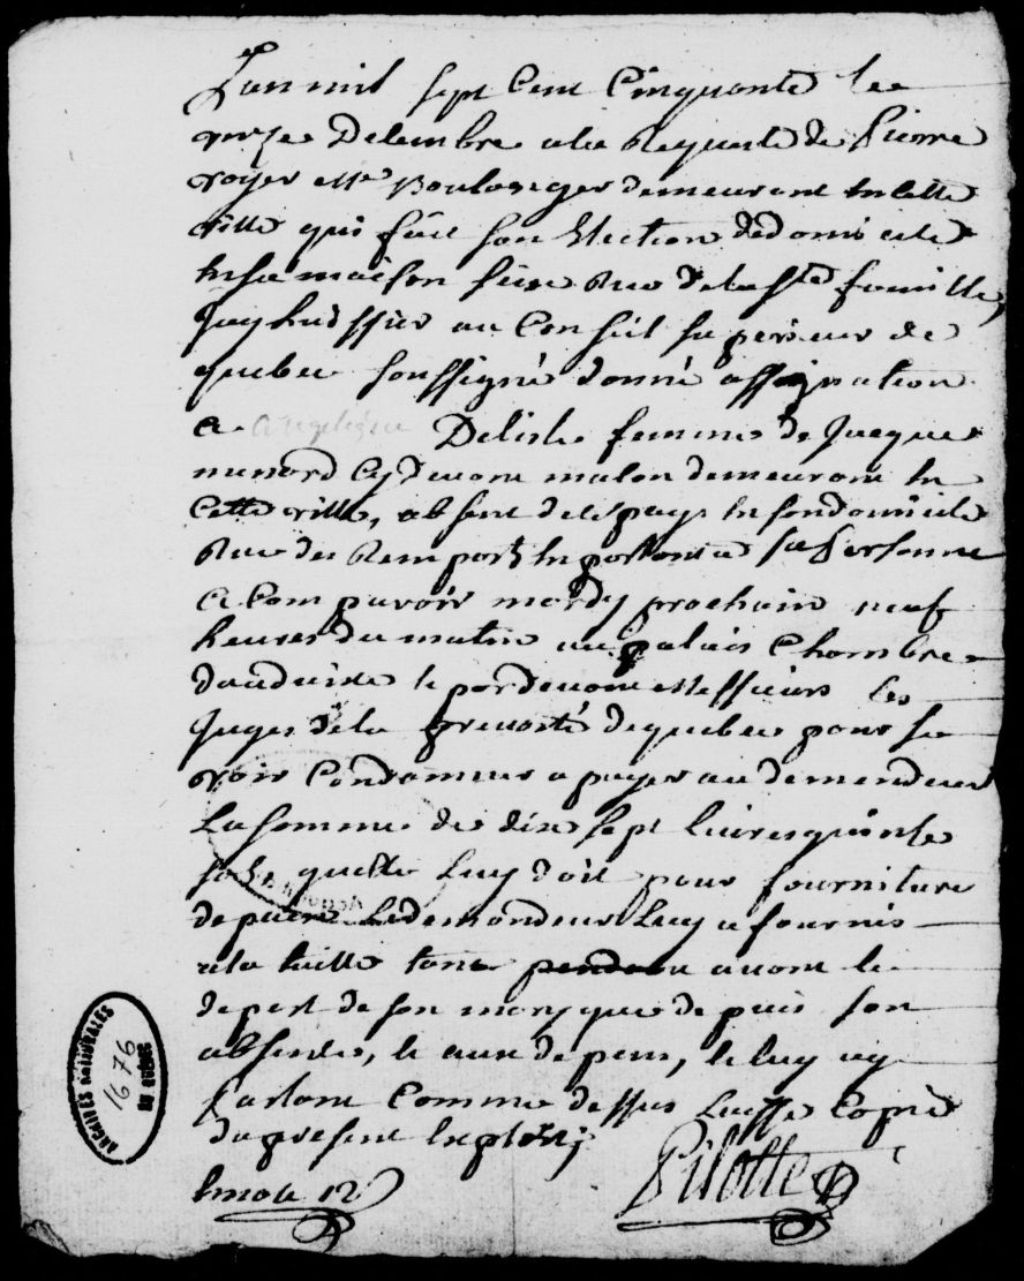 Lan mil sept Cent Cinquante le
onze Decembre ala Requeste de Pierre
voyer Me Boulanger demeurant En Cette
ville qui fait son Election de domicile
En sa maison sise Rue de la Ste famille,
Jay huissier au Conseil superieur de
quebec soussigné donné assignation
a angelique Delisle femme de Jacque
menard Cy devant malon demeurant En
Cette ville, absent de Ce pays En son domicile
Rue des Rempars En parlant a sa personne
a Comparoir mardy prochain neuf
heures du matin au palais Chambre
daudiance et pardevant Messieurs les
Juges de la prevosté de quebec pour se
voir Condamner a payer au demandeur
La somme de dix sept livres quinse
sols, quelle Luy doit pour fourniture
de pain Le demandeur Luy a fournis
ala taille tant pendant avant le
depart de son mary que depuis son
absence, et aux depens, et luy ay
parlant Comme dessus Laissé Copie
du present Exploit
Emolu 12
Pilotte
ARCHIVES NATIONALES
1676
DU QUÉBEC